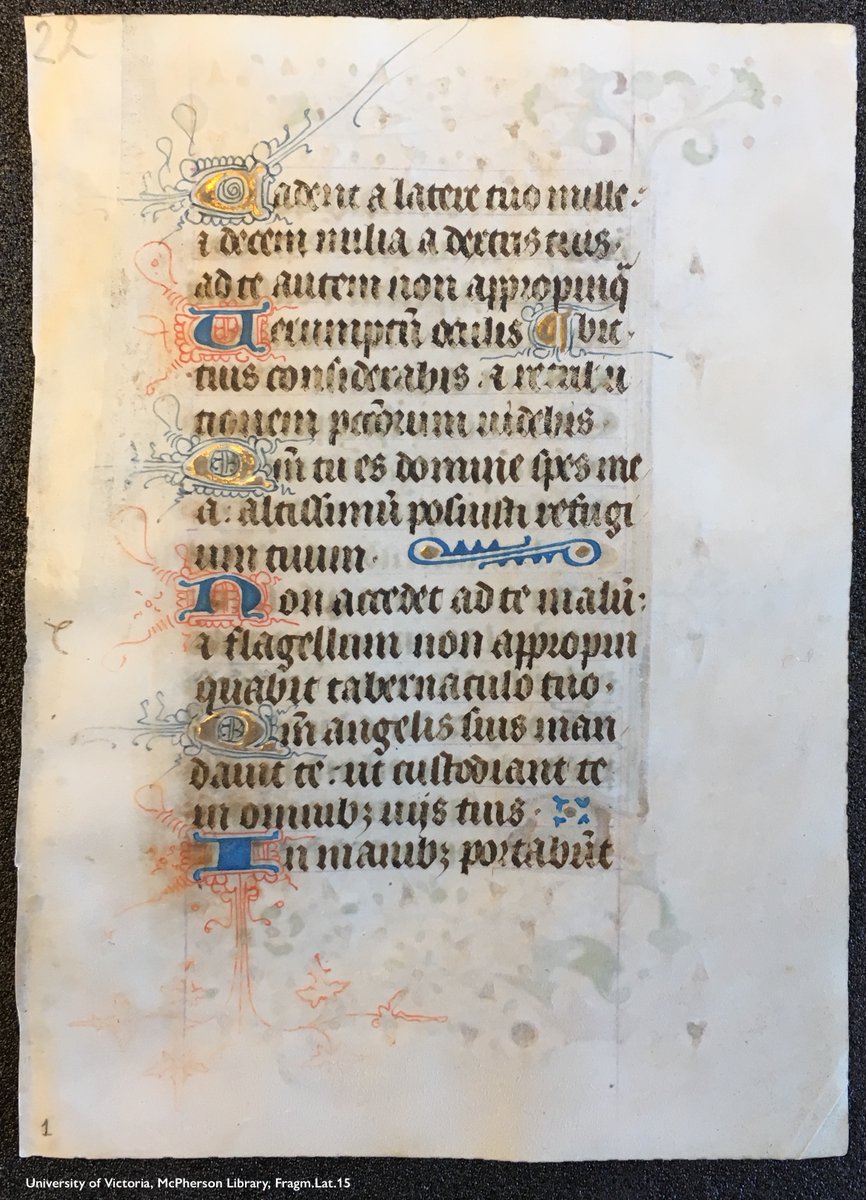 22
Cadent a latere tuo mille :
⁊ decem milia a dextris tuis ·
ad te autem non appropinq̄
Uerumptū oculis ¶ bit ·
tuis considerabis : ⁊ retribu
tionem pecc̄orum uidebis ·
Qm̄ tu es domine spes me
a : altissimū posuisti refugi
um tuum ·
Non accedet ad te malū :
⁊ flagellum non appropin
quabit tabernaculo tuo ·
Qm̄ angelis suis man
dauit te : ut custodiant te
in omnibꝫ uijs tuis ·
In manibꝫ portabūt
1
University of Victoria, McPherson Library, Fragm.Lat.15